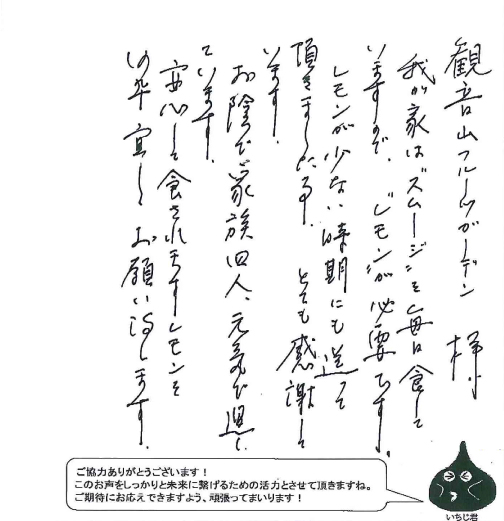 観音山フルーツガーデン 様
我が家はズムージンを毎日食して
いますので、レモンが必要です。
レモンが少ない時期にも送って
頂きまして とても感謝して
います。
お陰で家族四人、元気で過し
ています。
安心して食されますレモンを
今年宜しくお願い致します。
ご協力ありがとうございます!
このお声をしっかりと未来に繋げるための活力とさせて頂きますね。
ご期待にお応えできますよう、頑張ってまいります!
いちじ君